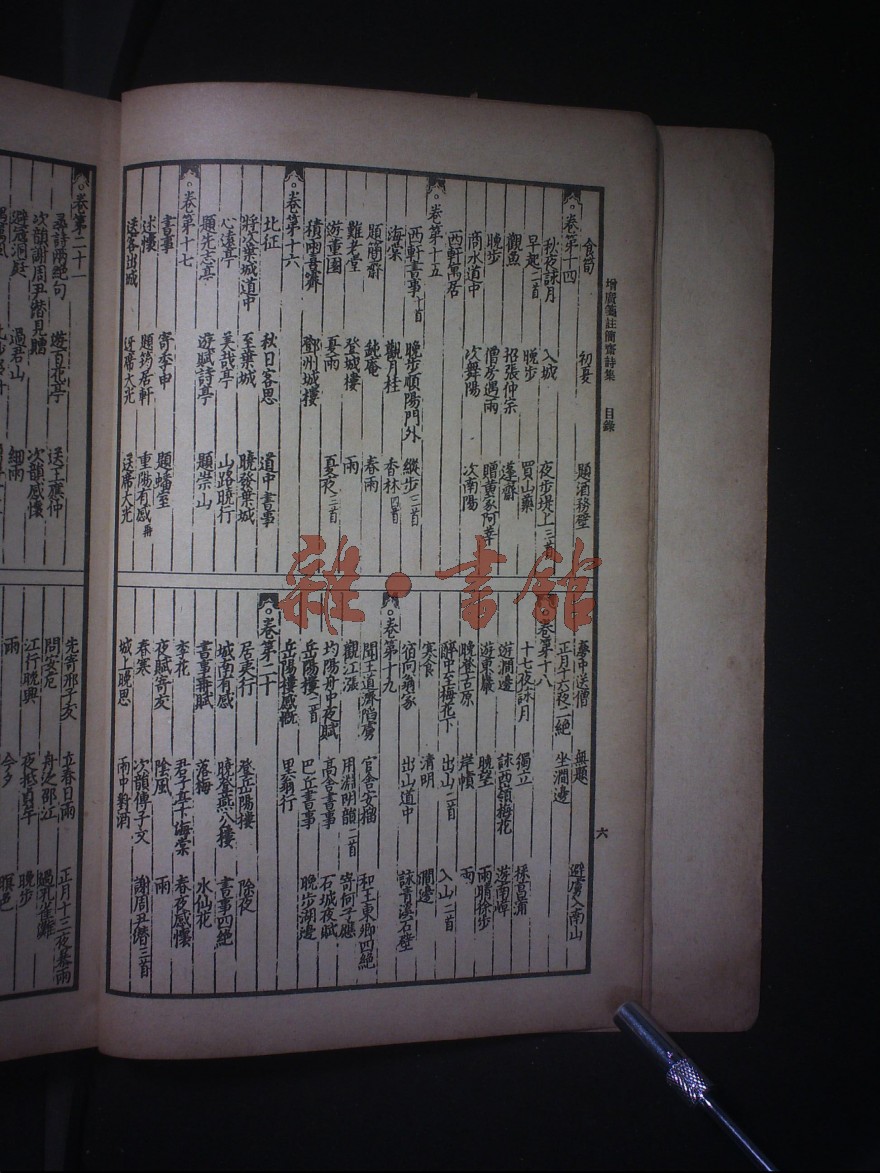 增廣箋註簡齋詩集 目錄
六
食筍 初夏 題酒務壁
卷第十四
秋夜詠月 入城 夜步堤上三首
早起二首 晚步 買山藥
觀魚 招張仲宗 蓬齋
晚步 僧房遇雨 贈黃家阿莘
商水道中 次舞陽 次南陽
西軒寓居
卷第十五
西軒書事二首 晚步順陽門外 縱步三首
海棠 觀月桂 香林四首
題簡齋 鈍庵 春雨
難老堂 登城樓 雨
遊董園 夏雨 夏夜二首
積雨喜霽 鄧州城樓
卷第十六
北征 秋日客思 道中書事
將次葉城道中 至葉城 曉發葉城
心遠亭 美哉亭 山路曉行
題先志亭 遊賦詩亭 題崇山
卷第十七
書事 寄季申 題蟠室
述懷 題筠居軒 重陽有感再
送客出城 送席大光
夢中送僧 無題 避虜入南山
正月十六夜二絕 坐澗邊
卷第十八
十七夜詠月 獨立 採菖蒲
遊澗邊 詠西嶺梅花 遊南嶂
遊東巖 晚望 雨晴徐步
晚登古原 岸幘 雨
醉中至梅花下 出山二首 入山二首
寒食 清明 澗邊
宿向翁家 出山道中 詠青溪石壁
卷第十九
聞王道濟陷虜 官舍安榴 和王東卿四絕
觀江漲 用淵明韻二首 寄何子應
均陽舟中夜賦 高舍書事 石城夜賦
岳陽樓二首 巴丘書事 晚步湖邊
岳陽樓感慨 里翁行
卷第二十
居夷行 登岳陽樓 除夜
城南有感 曉登燕公樓 書事四絕
書事再賦 落梅 水仙花
李花 君子亭下海棠 春夜感懷
夜賦寄友 陰風 雨
春寒 次韻傅子文 謝周尹潛三首
城上晚思 雨中對酒
卷第二十一
尋詩兩絕句 遊百花亭 送王應仲
次韻謝周尹潛見贈 過君山 次韻感懷
避寇洞庭 細雨
先寄邢子友 立春日雨 正月十二夜暴雨
問安危 舟次邵江 遇孔雀灘
江行晚興 夜抵貞牟 晚步
雨 今夕 暝色